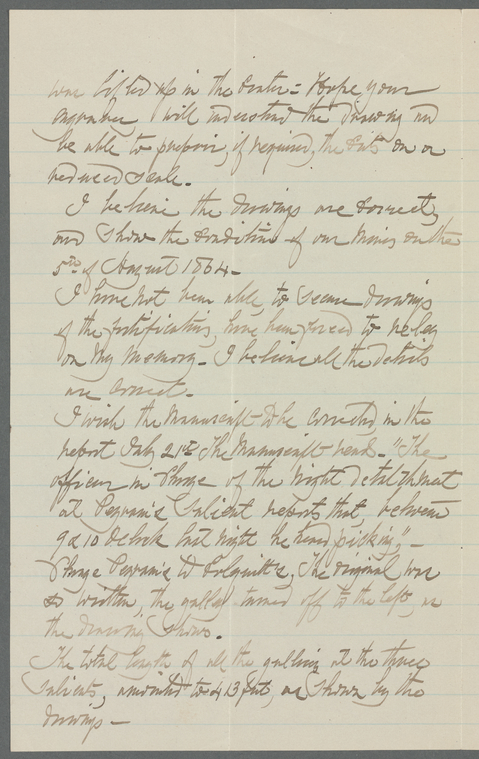 was lifted up in the Center = Hope your
engraver will understand the drawing and
be able to prepair, if required, the Cuts on a
reduced scale.
I believe the drawings are correct,
and show the condition of our mines on the
5th of August 1864 -
I have not been able, to secure drawings
of the fortifications, have been forced to relay
on my memory - I believe all the details
are correct.
I wish the Manuscript to be corrected in the
report July 21st The Manuscript read - "The
officer in charge of the Night detatchment
at Pegram's Salient reports that between
9 & 10 O clock last night he heard picking" -
Change Pegram's to Colquitt's, The original was
so written, the gallery turned off to the left, as
the drawing shows.
The total length of all the galleries at the three
Salients, amounted to 413 feet, as shown by the
drawings -